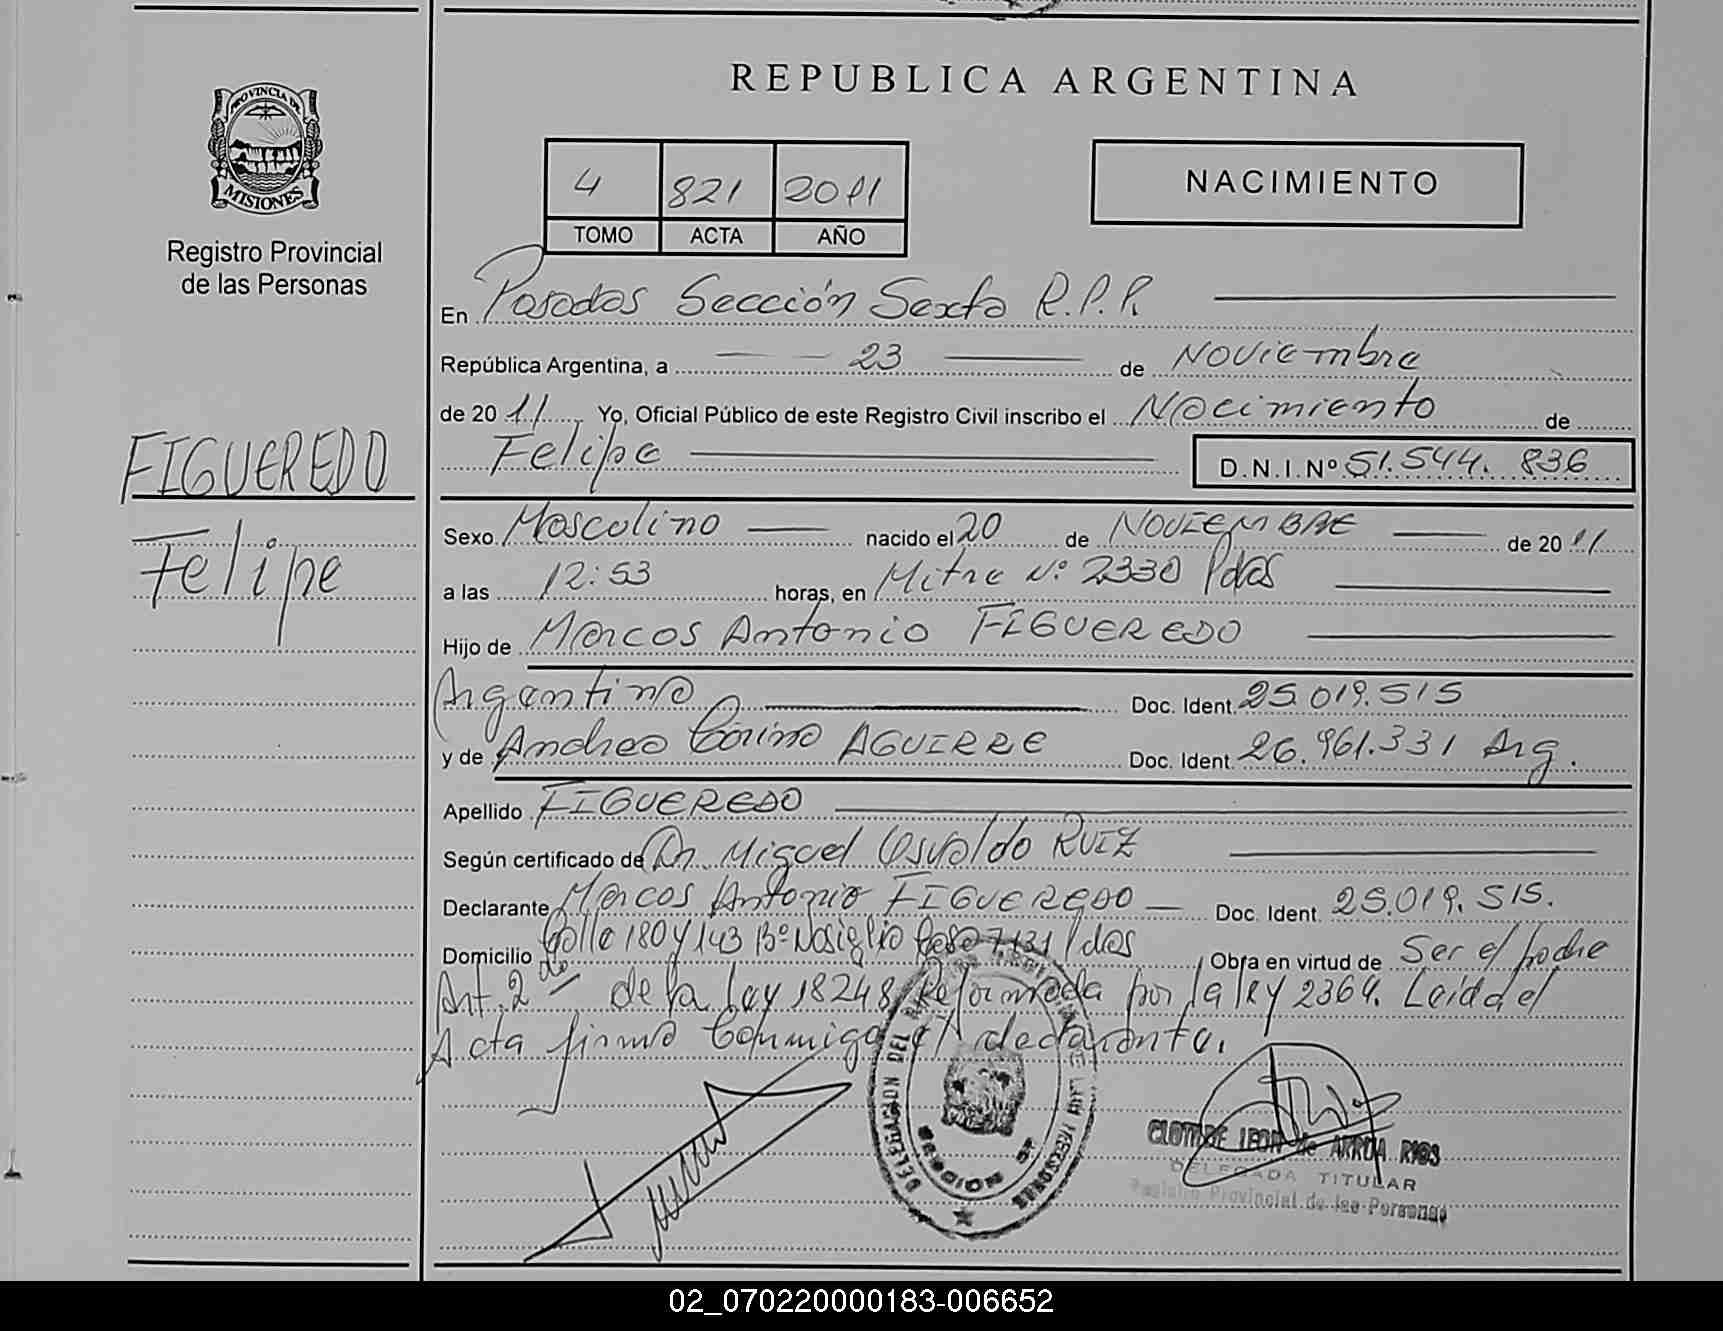 REPUBLICA ARGENTINA
PROVINCIA DE
MISIONES
Registro Provincial
de las Personas
4 821 2011
TOMO ACTA AÑO
NACIMIENTO
En Posadas Sección Sexta R.P.P.
República Argentina, a 23 de Noviembre
de 2011 Yo, Oficial Público de este Registro Civil inscribo el Nacimiento de
Felipe D.N.I. Nº 51.544.836
FIGUEREDO
Felipe
Sexo Masculino nacido el 20 de NOVIEMBRE de 2011
a las 12:53 horas, en Mitre Nº 2330 Pdas
Hijo de Marcos Antonio FIGUEREDO
Argentino Doc. Ident. 25.019.515
y de Andrea Corina AGUIRRE Doc. Ident. 26.961.331 Arg.
Apellido FIGUEREDO
Según certificado de Dr. Miguel Osvaldo RUIZ
Declarante Marcos Antonio FIGUEREDO Doc. Ident. 25.019.515.
Domicilio Calle 180 y 143 Bº Nosiglio Casa 7131 Pdas Obra en virtud de Ser el padre
Art. 2do de la Ley 18248 Reformada por la ley 2364. Leída el
Acta firma conmigo el declarante.
DELEGACION DEL
CLOTILDE LEON de ARRUA RIOS
DELEGADA TITULAR
Registro Provincial de las Personas
02_070220000183-006652